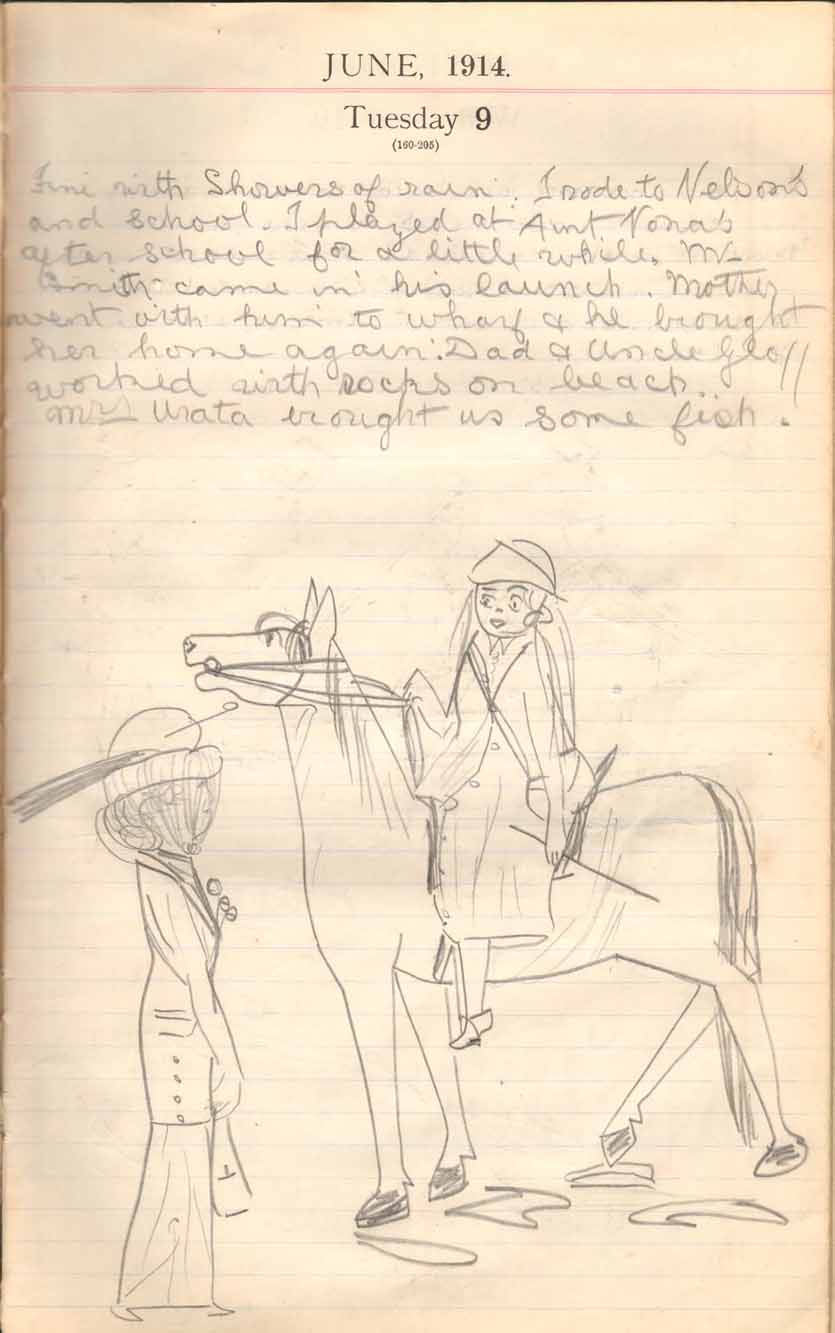 JUNE, 1914.
Tuesday 9
(160-205)
Fine with Showers of rain. I rode to Nelson's
and school. I played at Aunt Nona's
after school for a little while. Mr
Smith came in his launch. Mother
went with him to wharf & he brought
her home again. Dad & Uncle Geo//
worked with rocks on beach.
Mrs Wata brought us some fish.